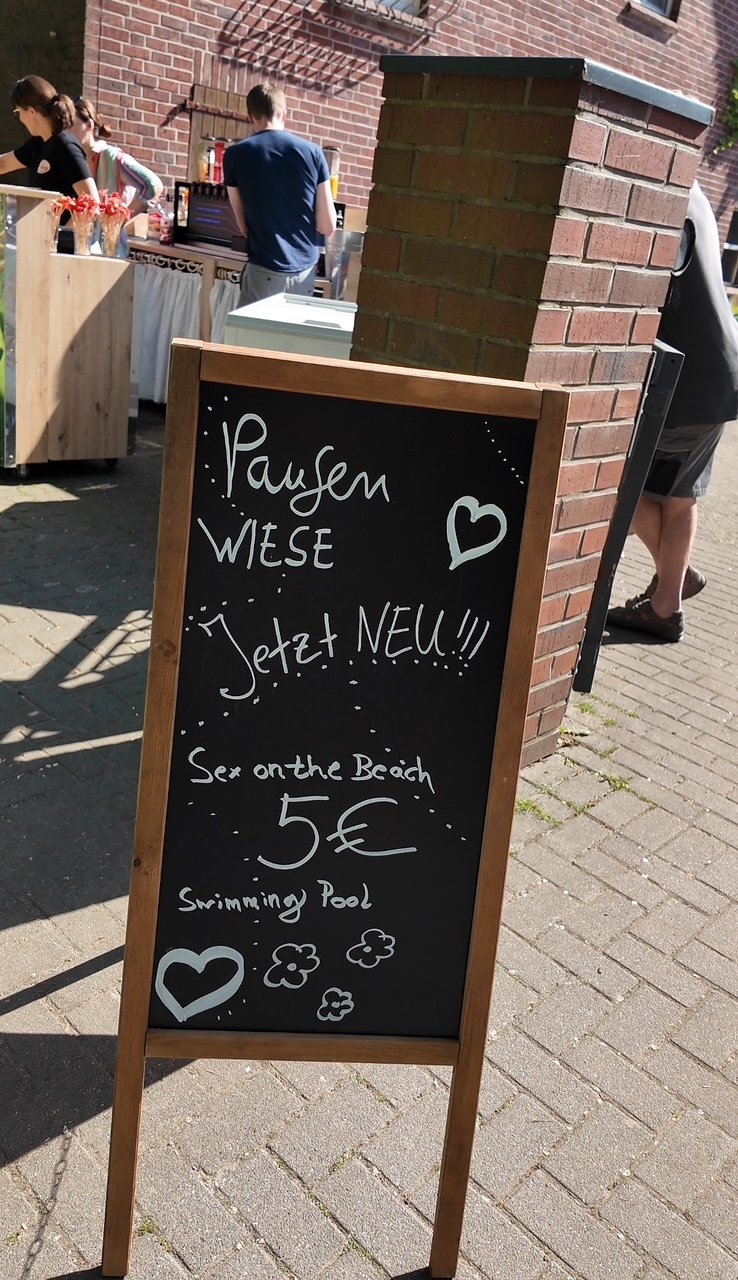 Pausen
WIESE
Jetzt NEU!!!
Sex on the Beach
5€
Swimming Pool